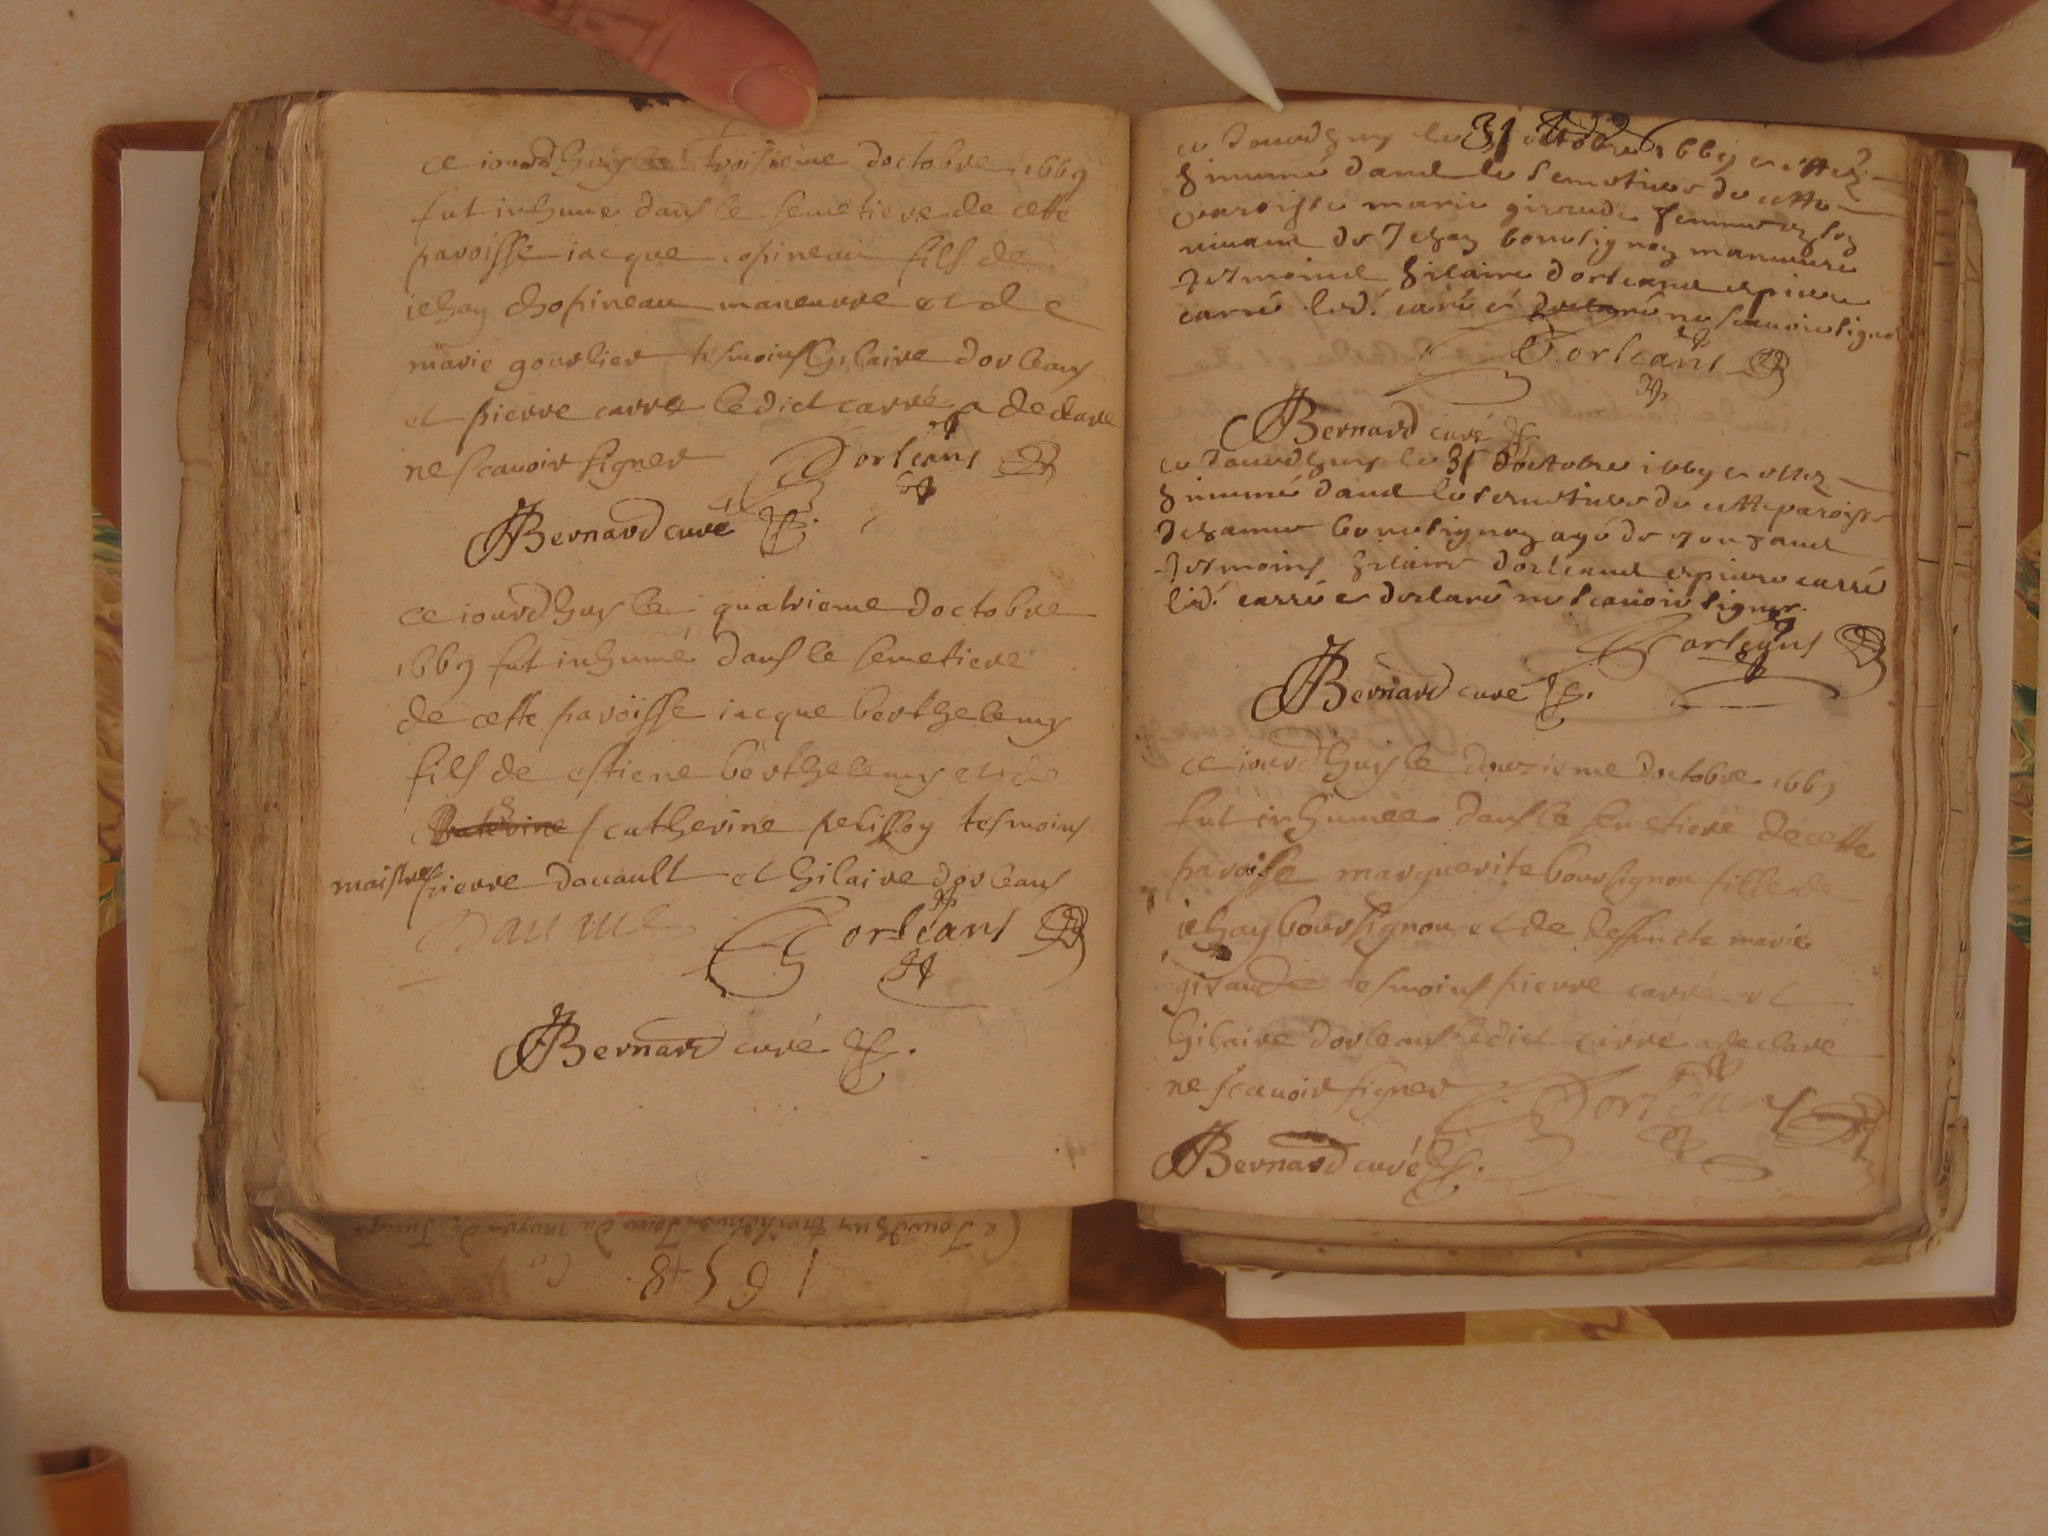 ce iourdhuy le troisieme doctobre 1669
fut inhume dans le semetiere de cette
paroisse iacque copineau fils de
iehan chopineau maneuvre et de
marie gourlier tesmoins hilaire dorleans
et pierre carré ledict carré a declare
ne scauoir signer Dorleans
Bernard curé
ce iourdhuy le quatrieme doctobre
1669 fut inhumé dans le semetiere
de cette paroisse iacque berthelemy
fils de estiene berthelemy et de
catherine pelisson tesmoins
maistre pierre douault et hilaire dorleans
Dorleans
Bernard curé
ce Jourdhuy le 31 octobre 1669 a esté
hinumé dans le semetiere de cette
paroisse marie giraude femme
vivant de Jehan maneuvre
tesmoins hilaire dorleans et pierre
carré led. carré a declaré ne scauoir signer
Dorleans
Bernard curé
ce Jourdhuy le 31 doctobre 1669 a esté
hinumé dans le semetiere de cette paroisse
agé de ans
tesmoins hilaire dorleans et pierre carré
led. carré a declaré ne scauoir signer.
Dorleans
Bernard curé
ce iourdhuy le douzieme doctobre 1669
fut inhumée dans le semetiere de cette
paroisse marguerite boursignon fille de
iehan boursignon et de deffuncte marie
giraude tesmoins pierre carré et
hilaire dorleans ledict carré a declare
ne scauoir signer Dorleans
Bernard curé
1658.